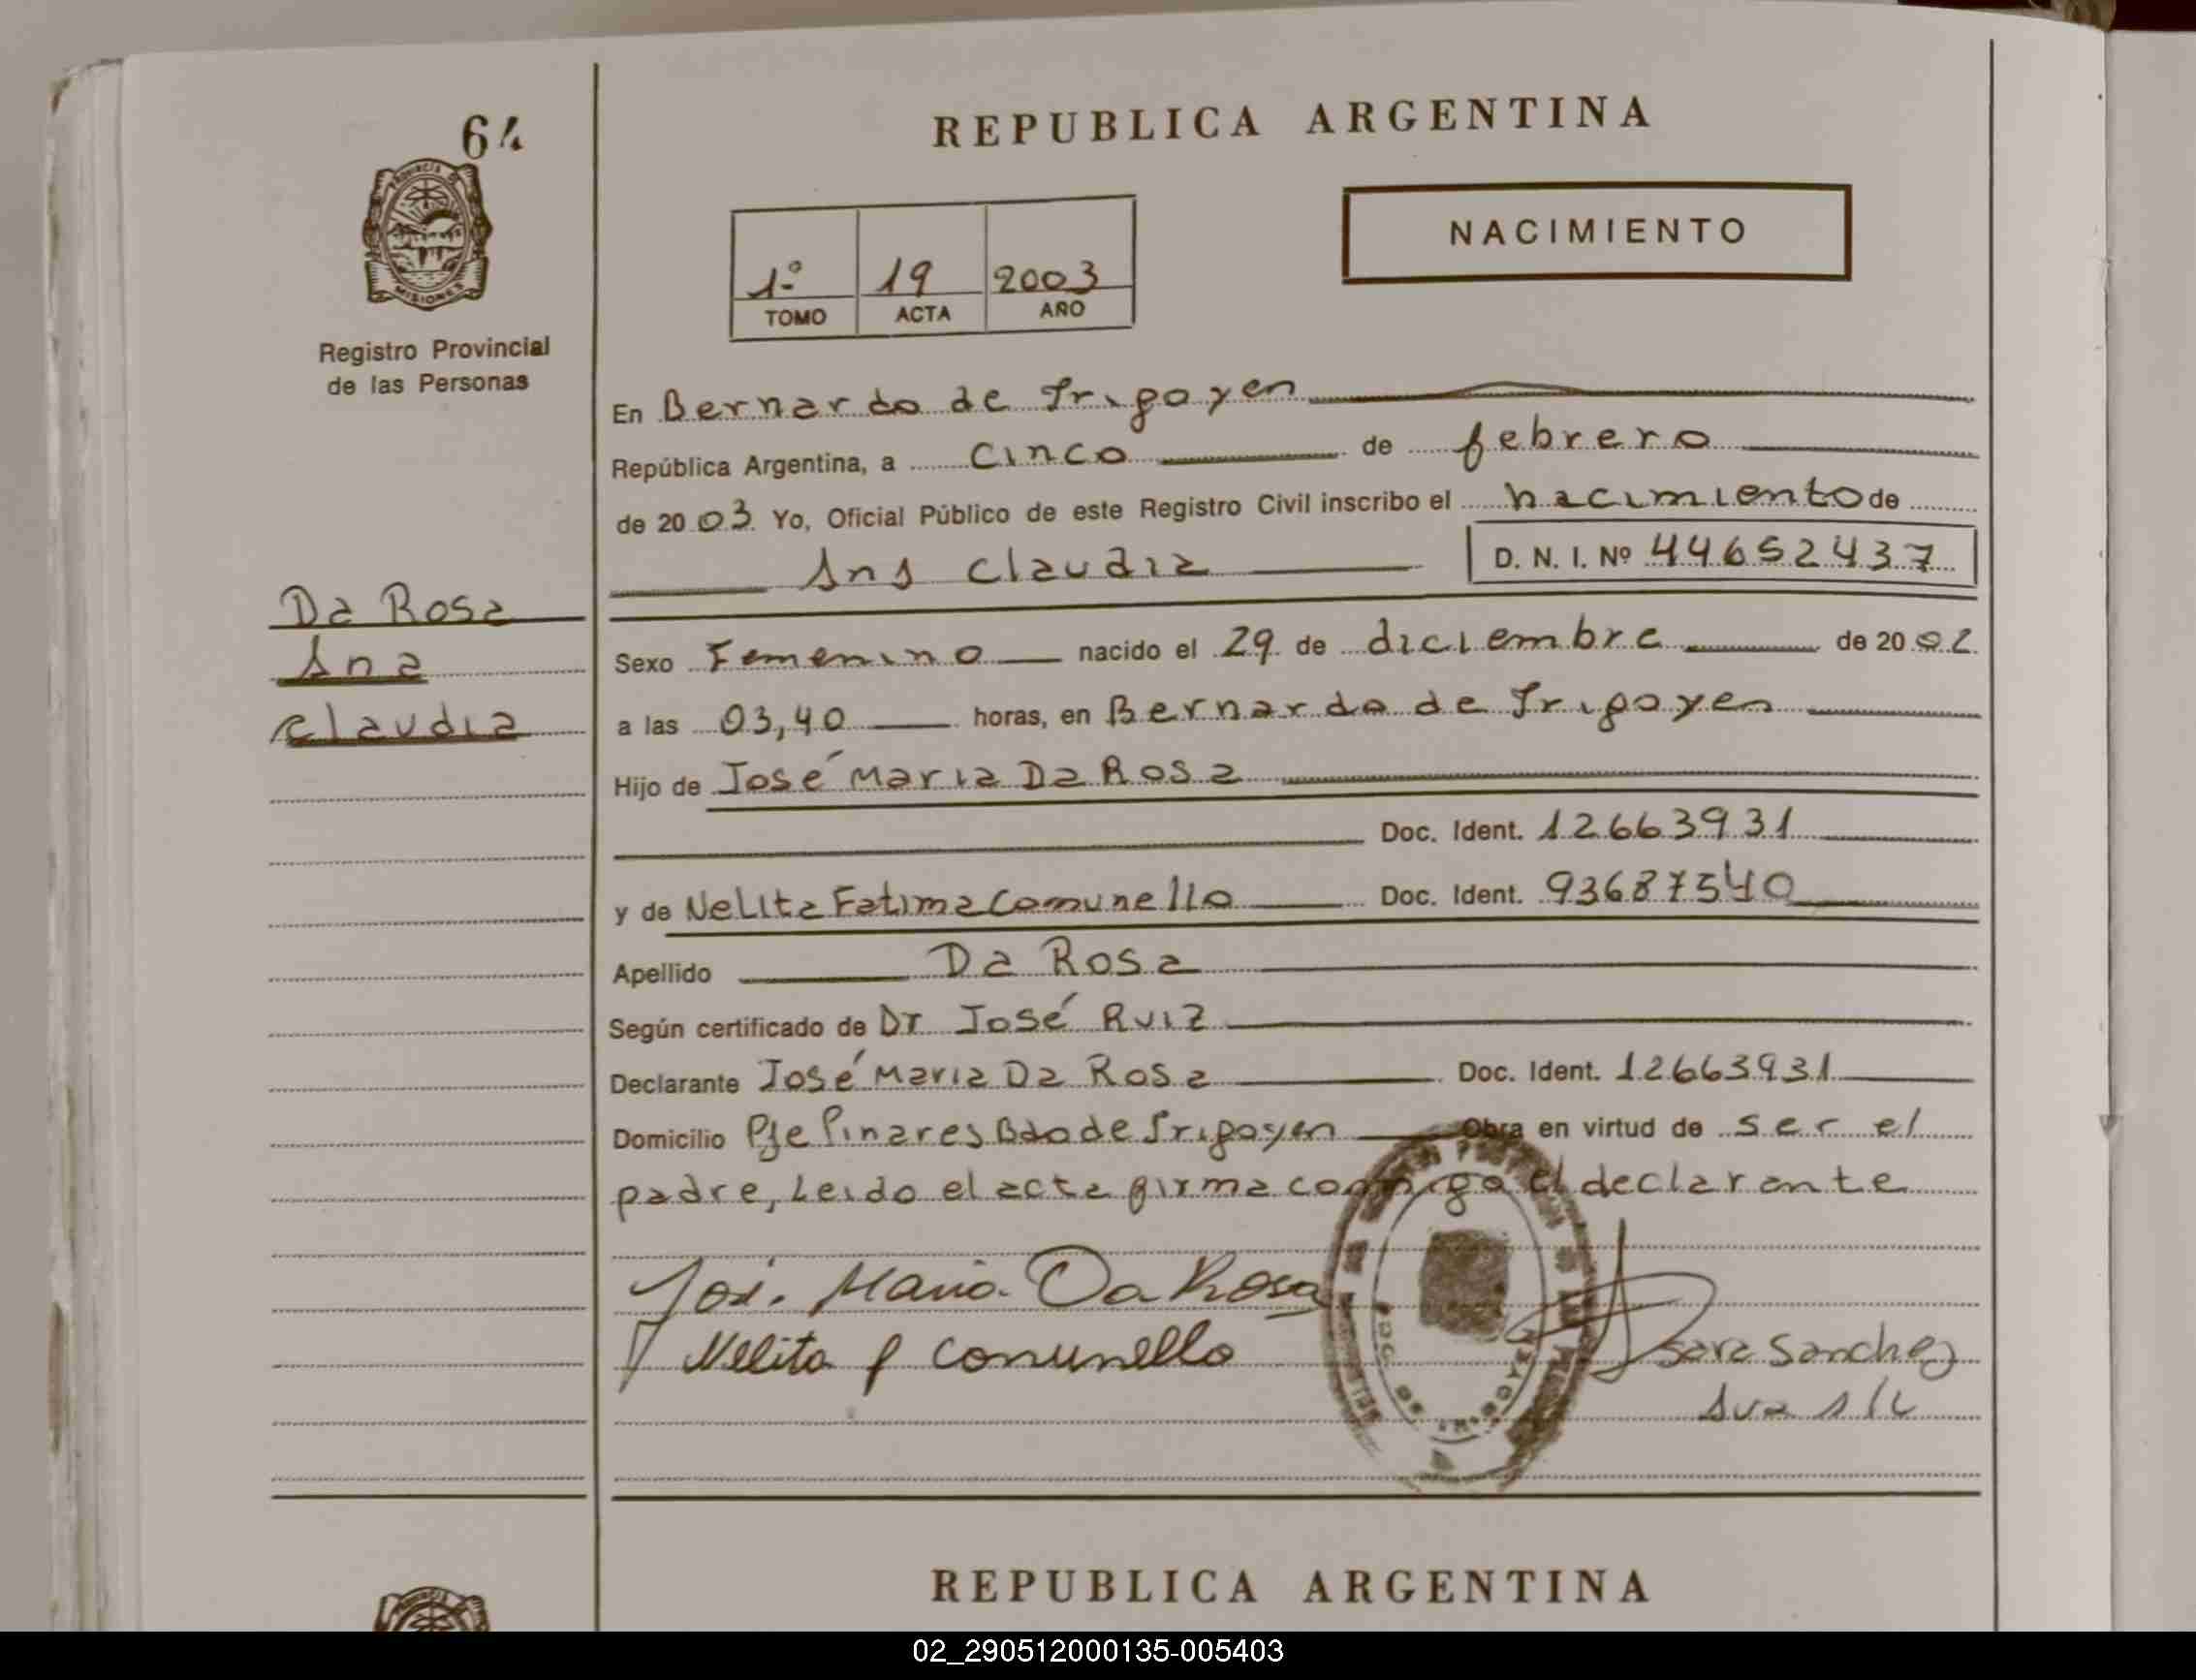 64
PROVINCIA DE
MISIONES
Registro Provincial
de las Personas
Da Rosa
Ana
Claudia
REPUBLICA ARGENTINA
NACIMIENTO
1º 19 2003
TOMO ACTA AÑO
En Bernardo de Irigoyen
República Argentina, a cinco de febrero
de 2003 Yo, Oficial Público de este Registro Civil inscribo el nacimiento de
Ana Claudia D. N. I. Nº 44652437
Sexo Femenino nacido el 29 de diciembre de 2002
a las 03,40 horas, en Bernardo de Irigoyen
Hijo de José Maria Da Rosa
Doc. Ident. 12663931
y de Nelita Fatima Comunello Doc. Ident. 93687540
Apellido Da Rosa
Según certificado de Dr José Ruiz
Declarante José Maria Da Rosa Doc. Ident. 12663931
Domicilio Pje Pinares Bdo de Irigoyen Obra en virtud de ser el
padre, Leido el acta firma conmigo el declarante
José Maria Da Rosa
Nelita f Comunello
Sara Sanchez
REPUBLICA ARGENTINA
02_290512000135-005403